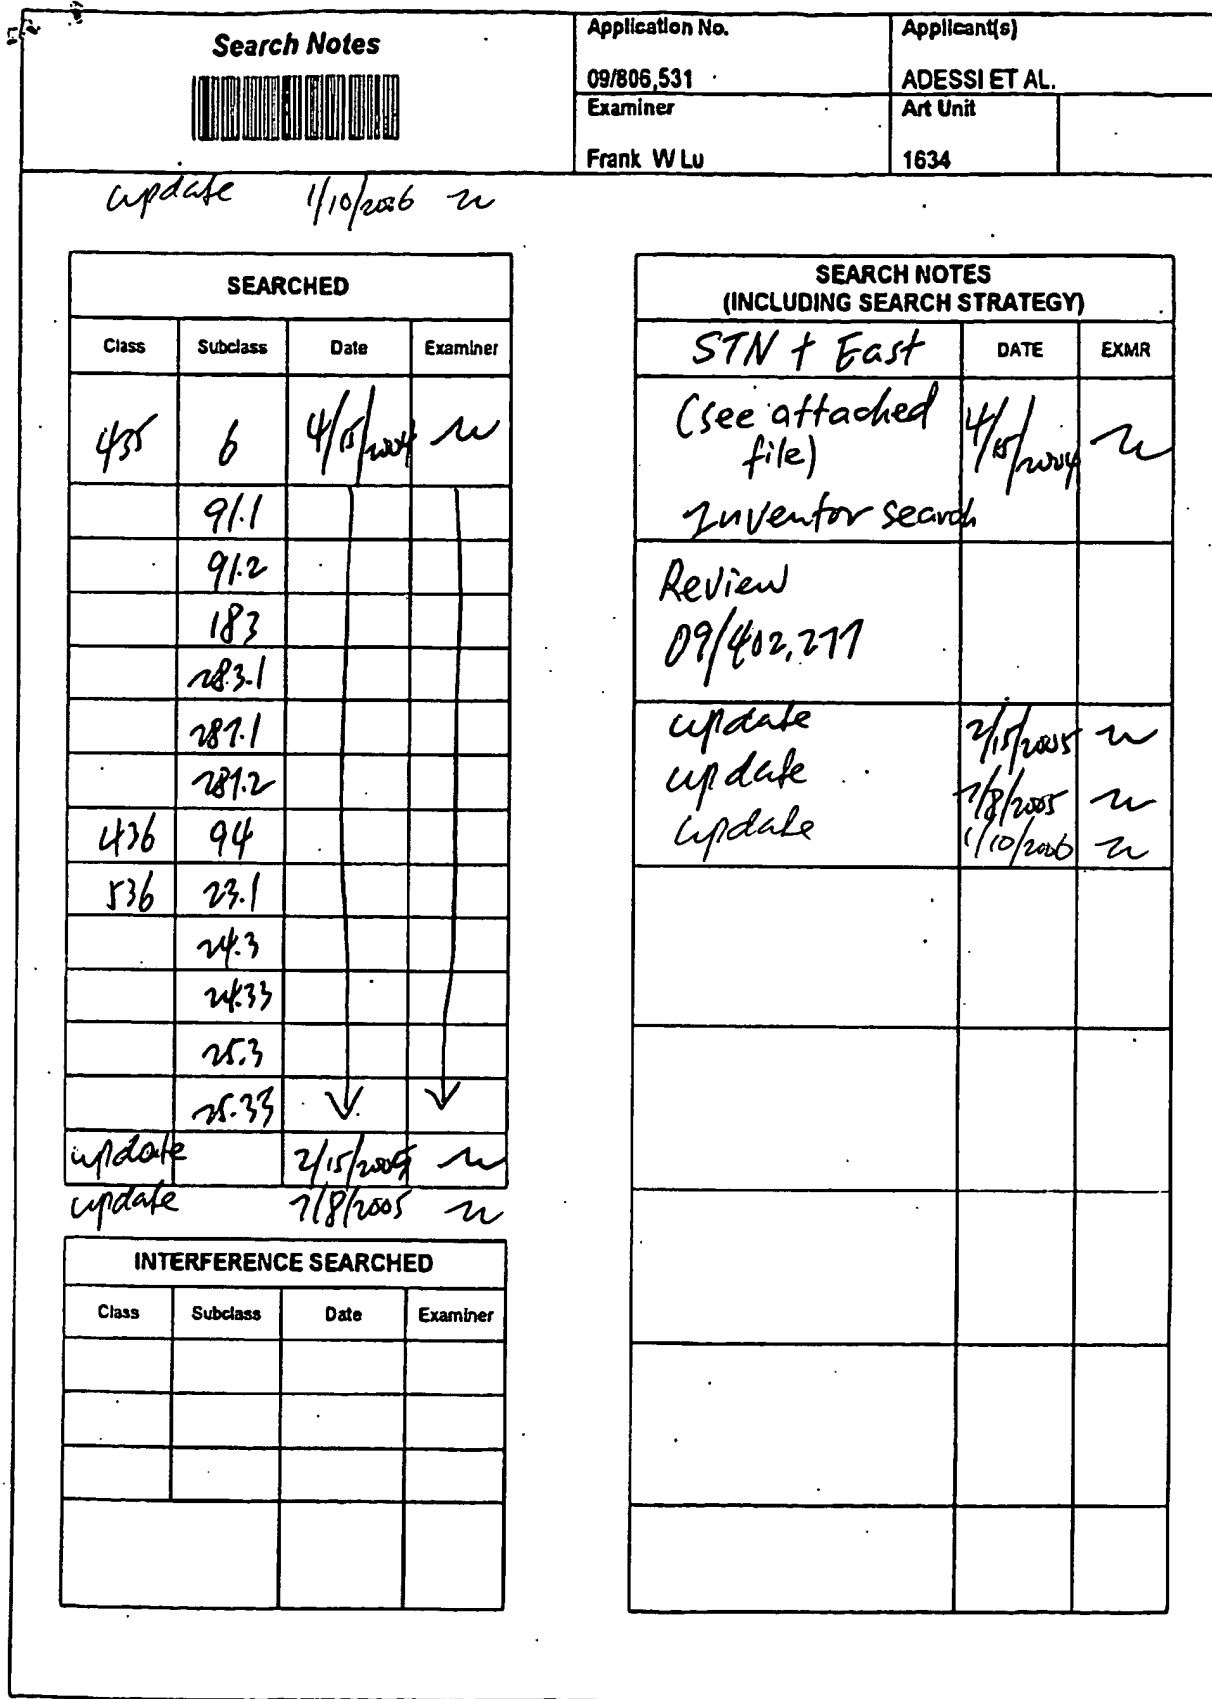 Search Notes
Application No.
Applicant(s)
09/806,531
ADESSI ET AL.
Examiner
Art Unit
Frank W Lu
1634
update 1/10/2006
SEARCHED
Class Subclass Date Examiner
435 6 4/15/2004
91.1
91.2
183
283.1
287.1
287.2
436 94
536 23.1
24.3
24.33
25.3
25.33
update 2/15/2005
update 7/8/2005
INTERFERENCE SEARCHED
Class Subclass Date Examiner
SEARCH NOTES
(INCLUDING SEARCH STRATEGY)
STN + East DATE EXMR
(see attached file) 4/15/2004
Inventor search
Review
09/402,277
update 2/15/2005
update 7/8/2005
update 1/10/2006